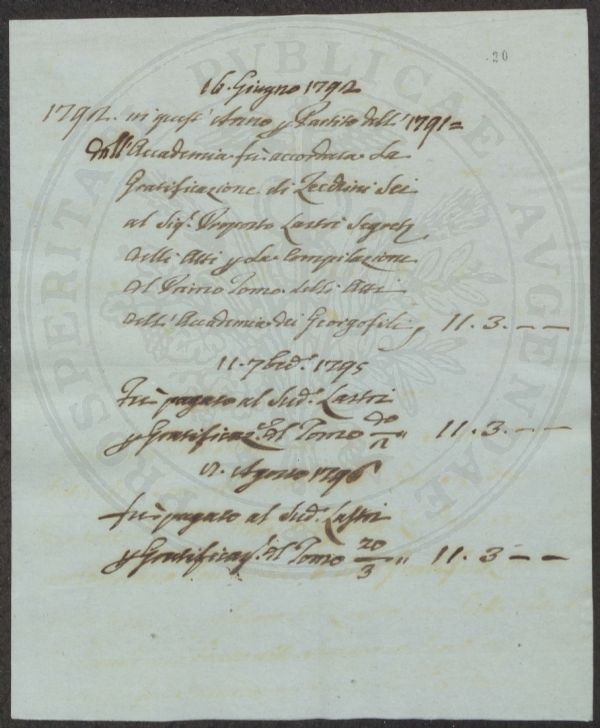 20
16. Giugno 1792
1792. in quest' Anno p Partito dell' 1791=
dall' Accademia fù accordata La
Gratificazione di Zecchini Sei
al Sigr. Proposto Lastri Segret.
delli Atti p La Compilazione
del Primo Tomo delli Atti
dell' Accademia dei Georgofili, 11. 3. — —
11. 7bre. 1795
Fù pagato al Sudo. Lastri
p Gratificaze. del Tomo 2o/II " 11. 3. — —
Agosto 1796
Fù pagato al Sudo. Lastri
p Gratificaze. del Tomo 20/3 " 11. 3 — —
PROSPERITATI PVBLICAE AVGENDAE